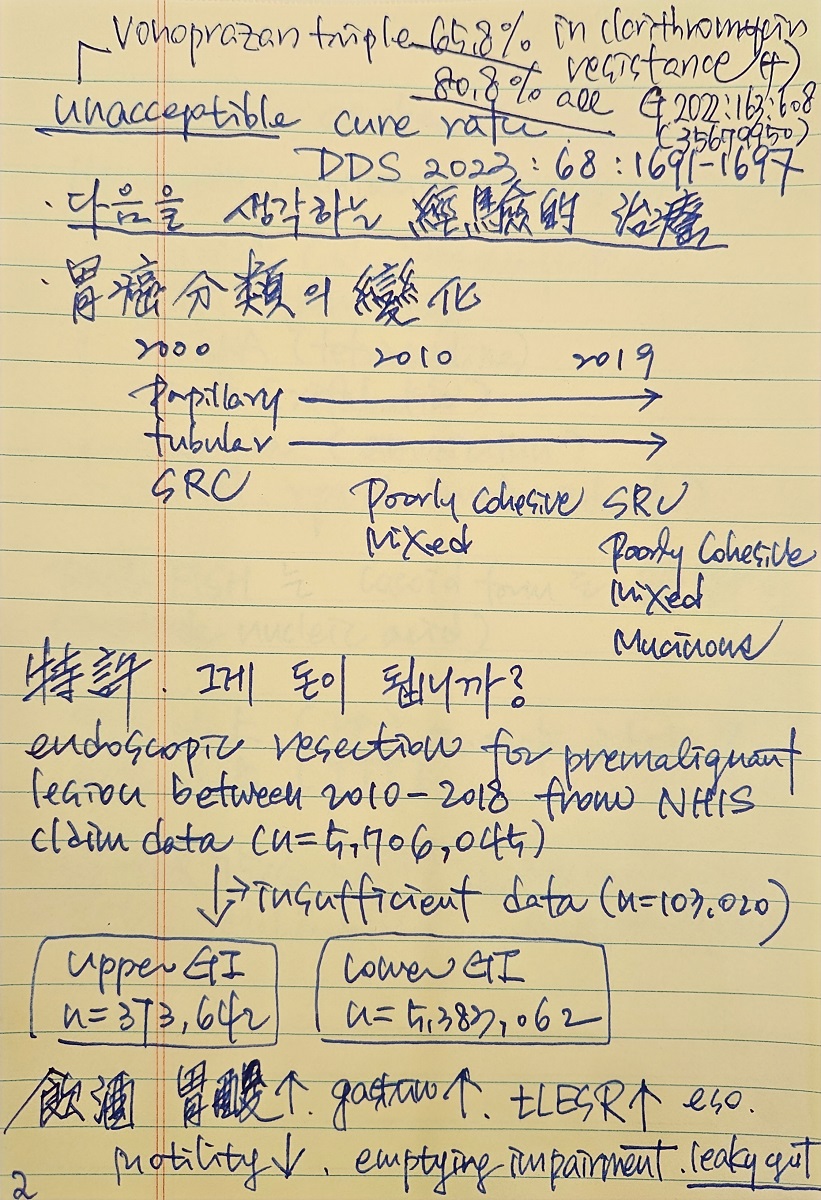 Vonoprazan triple 65.8% in clarithromycin
resistance (+)
80.8% all
G 2022:163:608
(35679950)
unacceptible cure rate
DDS 2023:68:1691-1697
· 다음을 생각하는 經驗的 治療
· 胃癌 分類의 變化
2000 2010 2019
Papillary →
tubular →
SRC Poorly cohesive SRC
Mixed Poorly cohesive
Mixed
Mucinous
特許. 그게 돈이 됩니까?
endoscopic resection for premalignant
lesion between 2010-2018 from NHIS
claim data (n=5,706,045)
↓→ insufficient data (n=103,020)
upper GI lower GI
n=373,642 n=5,383,062
飮酒 胃酸↑. gastrin↑. tLESR↑ eso.
motility↓. emptying impairment. leaky gut
2